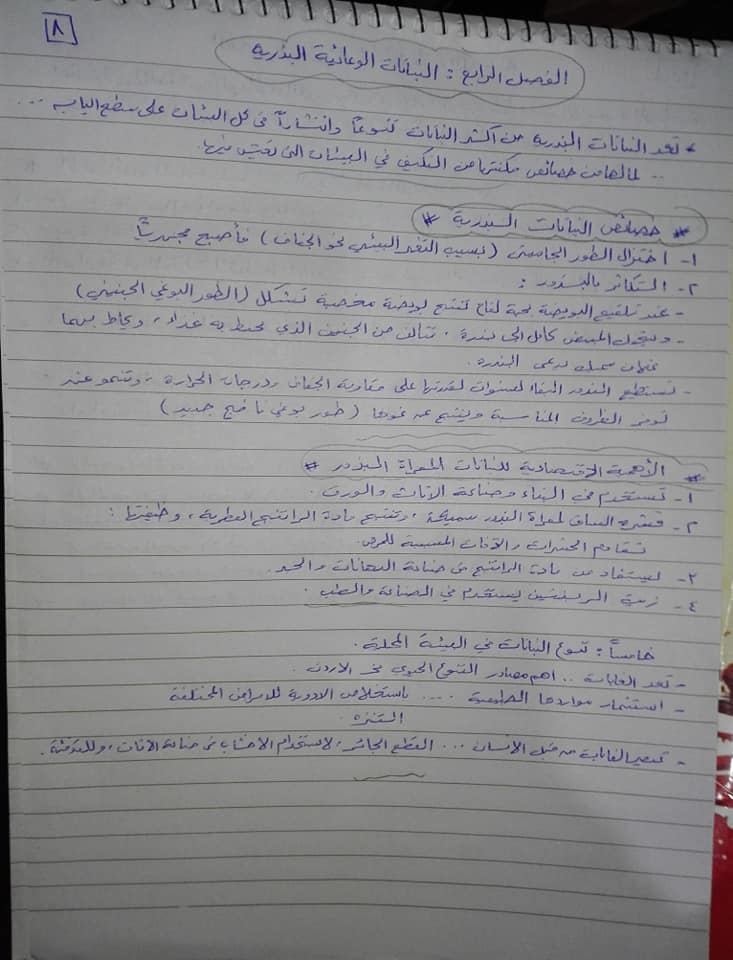 ٨
الفصل الرابع : النباتات الوعائية البذرية
* تعد النباتات البذرية من أكثر النباتات تنوعاً وانتشاراً في كل البيئات على سطح اليابسه ...
.. لما لها من خصائص مكنتها من التكيف في البيئات التي تعيش فيها.
* خصائص النباتات البذرية *
١- اختزال الطور الجاميتي (بسبب التغير البيئي نحو الجفاف) فأصبح مجهرياً
٢- التكاثر بالبذور :
- عند تلقيح البويضة بحبة لقاح تنتج بويضة مخصبة تشكل (الطور البوغي الجنيني)
- ويتحول المبيض كامل الى بذرة . تتألف من الجنين الذي يحيط به غذاء ، ويحاط بهما
غلاف سميك يدعى البذره .
- تستطيع البذور البقاء لسنوات لقدرتها على مقاومة الجفاف ودرجات الحراره ، وتنمو عند
توفر الظروف المناسبة وينتج عن نموها (طور بوغي ناضج جديد)
* الأهمية الاقتصادية للنباتات المعراة البذور #
١- تستخدم في البناء وصناعة الأثاث والورق .
٢- قشرة الساق لمعراة البذور سميكة . وتنتج مادة الراتنج العطرية ، وظيفتها :
تقاوم الحشرات والآفات المسببة للمرض
٣- يستفاد من مادة الراتنج في صناعة الدهانات والحبر
٤- زيت الربنتين يستخدم في الصناعة والطب .
خامساً : تنوع النباتات في البيئة المحلية .
- تعد الغابات .. اهم مصادر التنوع الحيوي في الاردن .
- استثمار مواردها الطبيعية .... باستخلاص الادوية للامراض المختلفة
التنزه .
- الغابات من قبل الانسان ... القطع الجائر ، لاستخدام الاخشاب في صناعة الاثاث ، وللتدفئة .